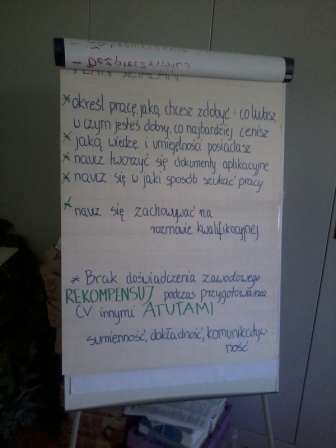 PLAN DZIAŁAŃ
* określ pracę jaką chcesz zdobyć : co lubisz,
w czym jesteś dobny, co najbardziej cenisz
* jaką wiedzę i umiejętności posiadasz
* naucz tworzyć się dokumenty aplikacyjne
* naucz się w jaki sposób szukać pracy
* naucz się zachowywać na
rozmowie kwalifikacyjnej
* Brak doświadczenia zawodowego
REKOMPENSUJ podczas przygotowania
CV innymi ATUTAMI
sumienność, dokładność, komunikatyw-
ność